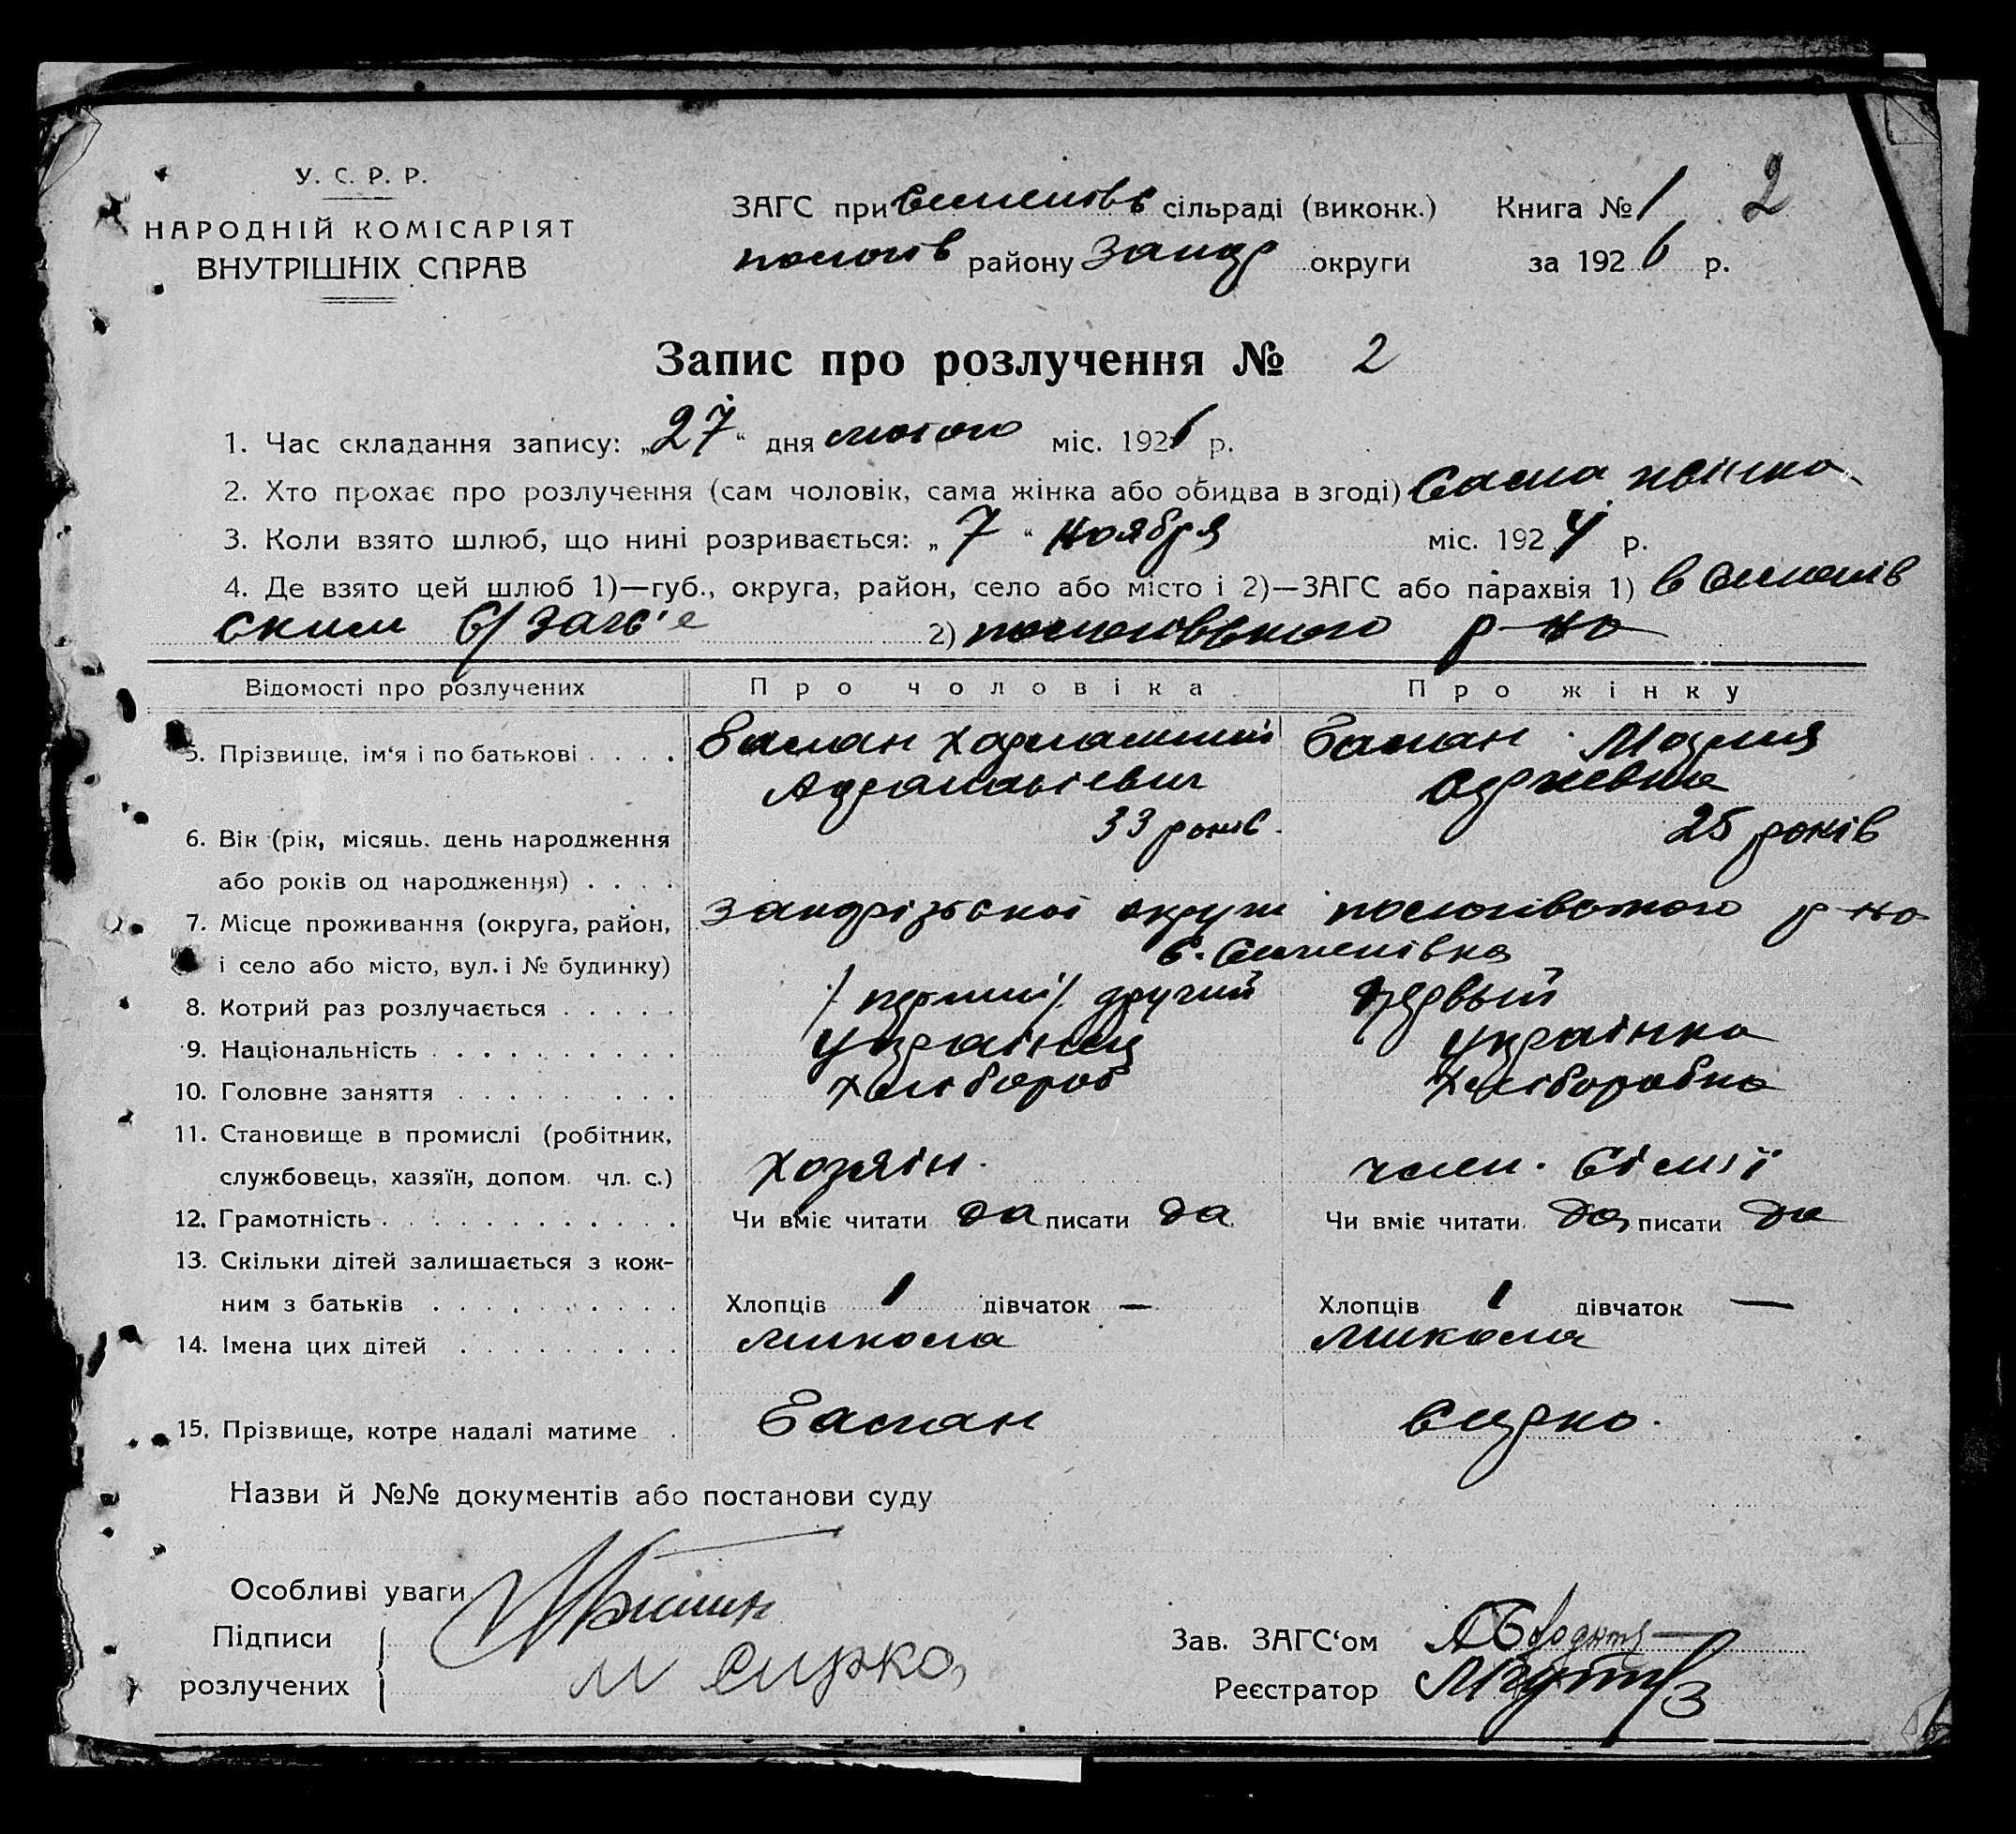 У. С. Р. Р.
НАРОДНІЙ КОМІСАРІЯТ
ВНУТРІШНІХ СПРАВ
ЗАГС при Семенівс сільраді (виконк.) Книга № 1 2
пологів району Запор округи за 1926 р.
Запис про розлучення № 2
1. Час складання запису: „27“ дня лютого міс. 1926 р.
2. Хто прохає про розлучення (сам чоловік, сама жінка або обидва в згоді) Сама жінка
3. Коли взято шлюб, що нині розривається: „7“ ноября міс. 1924 р.
4. Де взято цей шлюб 1)—губ., округа, район, село або місто і 2)—ЗАГС або парахвія 1) в Семенів
ским с/загс'е 2) пологівського р-на
Відомості про розлучених Про чоловіка Про жінку
5. Прізвище, ім‘я і по батькові Баман Мария
33 років. 25 років
6. Вік (рік, місяць, день народження
або років од народження)
7. Місце проживання (округа, район, Запорізької округи пологівського р-на
і село або місто, вул. і № будинку) с. Семенівка
8. Котрий раз розлучається /перший/. другий Первый
9. Національність Українец українка
10. Головне заняття хлібороб хліборобка
11. Становище в промислі (робітник,
службовець, хазяїн, допом. чл. с.) Хозяін. член. сімії
12. Грамотність Чи вміє читати да писати да Чи вміє читати да писати да
13. Скільки дітей залишається з кож-
ним з батьків Хлопців 1 дівчаток — Хлопців 1 дівчаток —
14. Імена цих дітей микола миколя
15. Прізвище, котре надалі матиме Баман Сирко.
Назви й №№ документів або постанови суду
Особливі уваги
Підписи
розлучених М Сирко
Зав. ЗАГС‘ом
Реєстратор